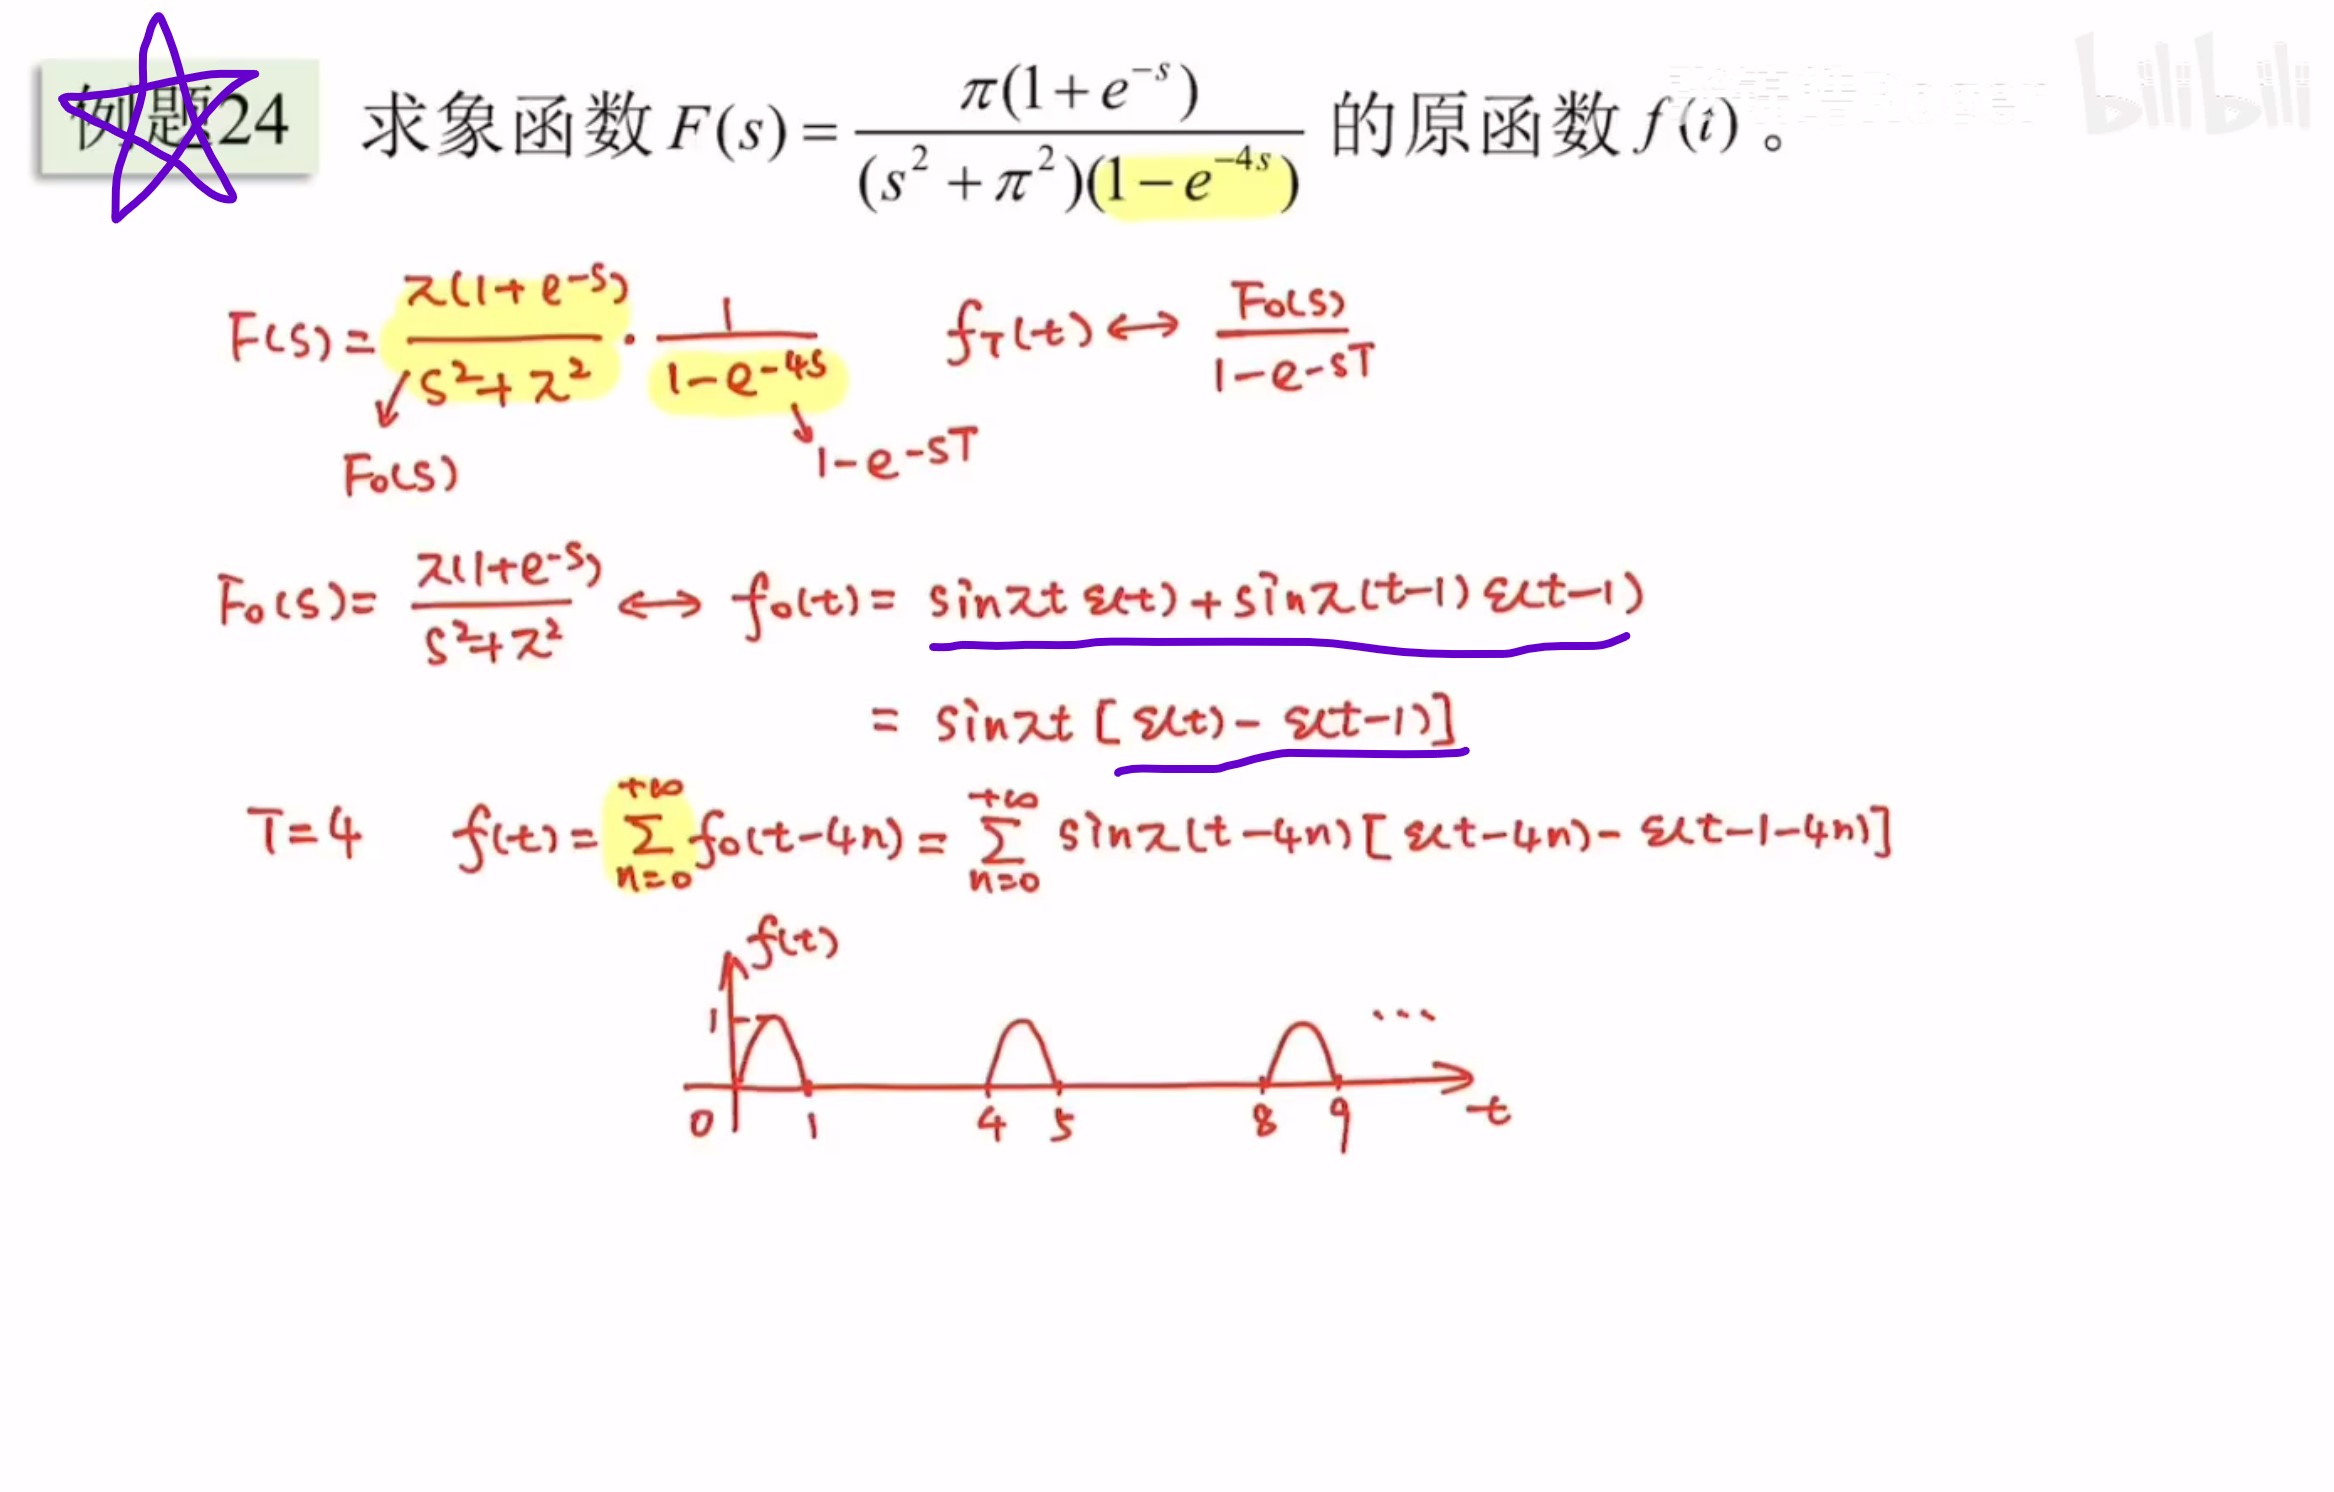 例题24 求象函数 F(s) = π(1+e^{-s}) / (s²+π²)(1−e^{-4s}) 的原函数 f(t)。
bilibili
F(s) = π(1+e^{-s}) / s²+π² · 1 / 1-e^{-4s}    f_T(t) ↔ F₀(s) / 1-e^{-sT}
F₀(s)    1-e^{-sT}
F₀(s) = π(1+e^{-s}) / s²+π² ↔ f₀(t) = sinπt ε(t) + sinπ(t-1) ε(t-1)
= sinπt [ε(t) - ε(t-1)]
T=4    f(t) = Σ_{n=0}^{+∞} f₀(t-4n) = Σ_{n=0}^{+∞} sinπ(t-4n) [ε(t-4n) - ε(t-1-4n)]
f(t)
1 ...
0 1 4 5 8 9 t